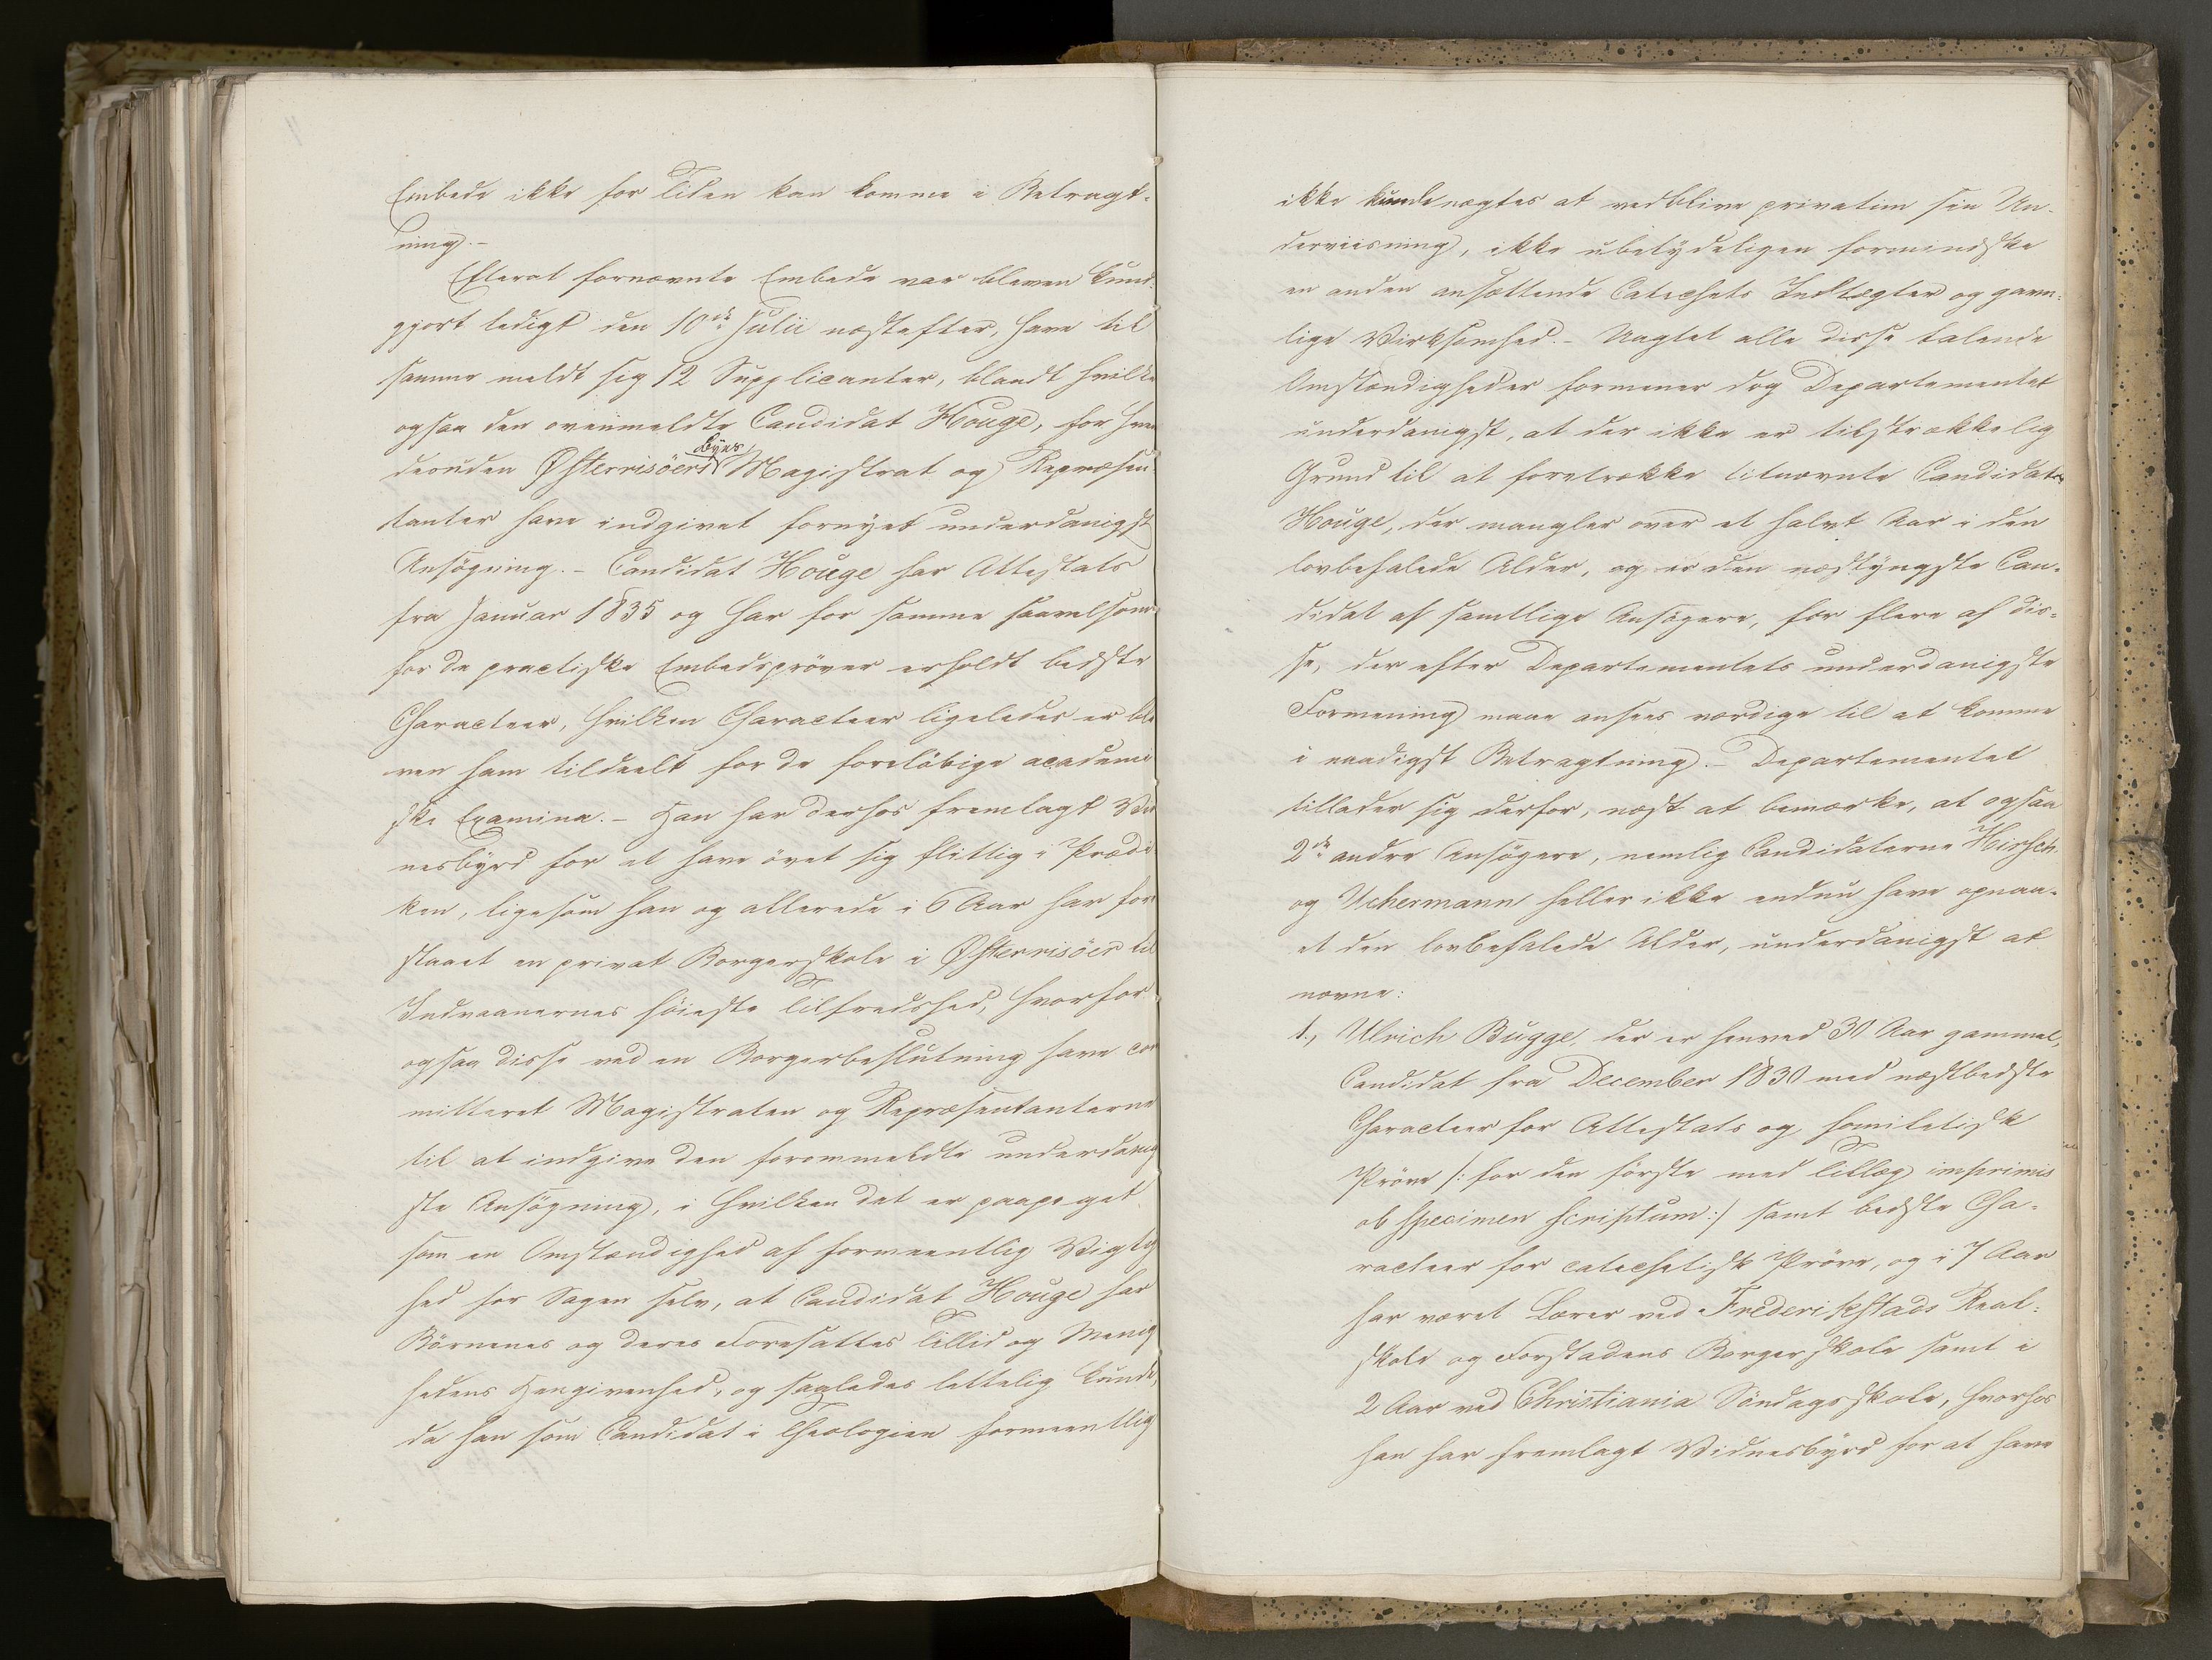 Embede ikke for Tiden kan komme i Betragt-
ning.-
Efterat fornævnte Embede var bleven kund-
gjort ledigt den 10de Julii næstefter, have til
samme meldt sig 12 Supplicanter, blandt hvilke
ogsaa den ovenmeldte Candidat Houge, for hvem
desuden Østerrisöers Byes Magistrat og Repræsen-
tanter have indgivet fornyet underdanigst
Ansøgning. - Candidat Houge har Attestats
fra Januar 1835 og har for samme saavelsom
for de practiske Embedsprøver erholdt bedste
Characteer, hvilken Characteer ligeledes er ble
ven ham tildeelt for de foreløbige academi
ske Examina. - Han har derhos fremlagt Vid
nesbyrd for at have øvet sig flittig i Prædi
ken, ligesom han og allerede i 6 Aar har fore
staaet en privat Borgerskole i Østerrisöer til
Indvaanernes høieste Tilfredshed, hvorfor
ogsaa disse ved en Borgerbeslutning have com
mitteret Magistraten og Repræsentanterne
til at indgive den forommeldte underdanig
ste Ansøgning, i hvilken det er paapeget
som en Omstændighed af formeentlig Vigtig
hed for Sagen selv, at Candidat Houge har
Børnenes og deres Foresattes Tillid og Menig
hedens Hengivenhed, og saaledes lettelig kunde,
da han som Candidat i Theologien formeentlig
ikke kunde nægtes at vedblive privatim sin Un-
derviisning, ikke ubetydeligen formindske
en anden ansættende Catechets Indtægter og gavn-
lige Virksomhed. - Uagtet alle disse talende
Omstændigheder formener dog Departementet
underdanigst, at der ikke er tilstrækkelig
Grund til at foretrække bemeldte Candidat
Houge, der mangler over et halvt Aar i den
lovbefalede Alder, og er den næstyngste Can-
didat af samtlige Ansøgere, for flere af dis-
se, der efter Departementets underdanigste
Formening maae ansees værdige til at komme
i naadigst Betragtning. - Departementet
tillader sig derfor, næst at bemærke, at ogsaa
2de andre Ansøgere, nemlig Candidaterne Hirsch
og Uchermann heller ikke endnu have opnaa-
et den lovbefalede Alder, underdanigst at
nævne:
1., Ulrich Bugge, der er henved 30 Aar gammel,
Candidat fra December 1830 med næstbedste
Characteer for Attestats og homiletisk
Prøve /: for den første med Tillæg imprimis
ob specimen scriptum :/ samt bedste Cha-
racteer for catechetisk Prøve, og i 7 Aar
har været Lærer ved Frederikstads Real-
skole og Forstadens Borgerskole samt i
2 Aar ved Christiania Søndagsskole, hvorhos
han har fremlagt Vidnesbyrd for at have